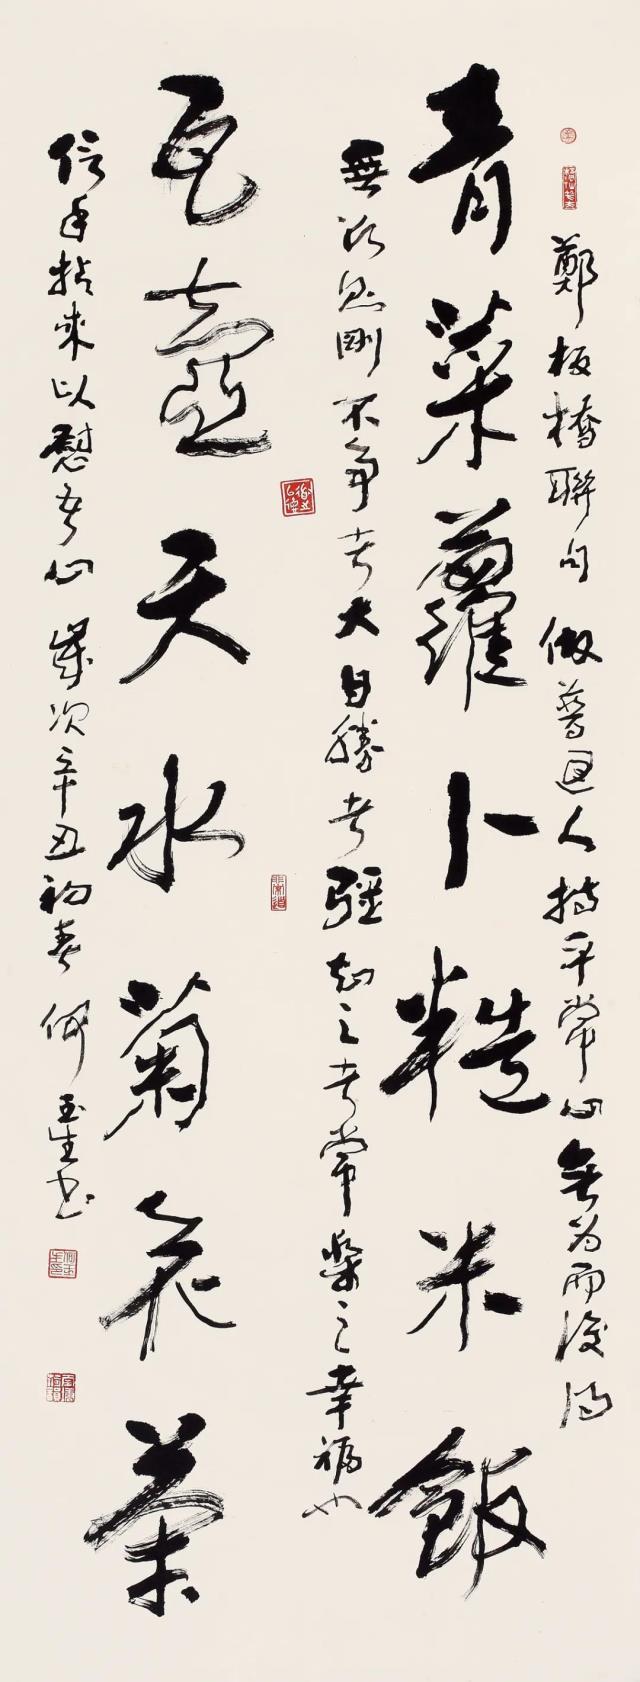 鄭板橋聯句 做普通人持平常心無為而後得
青菜蘿卜糙米飯
無欲則剛不爭者大自勝者強知足者常樂之幸福也
瓦壺天水菊花茶
信手拈來以慰吾心 歲次辛丑初春 何玉生書